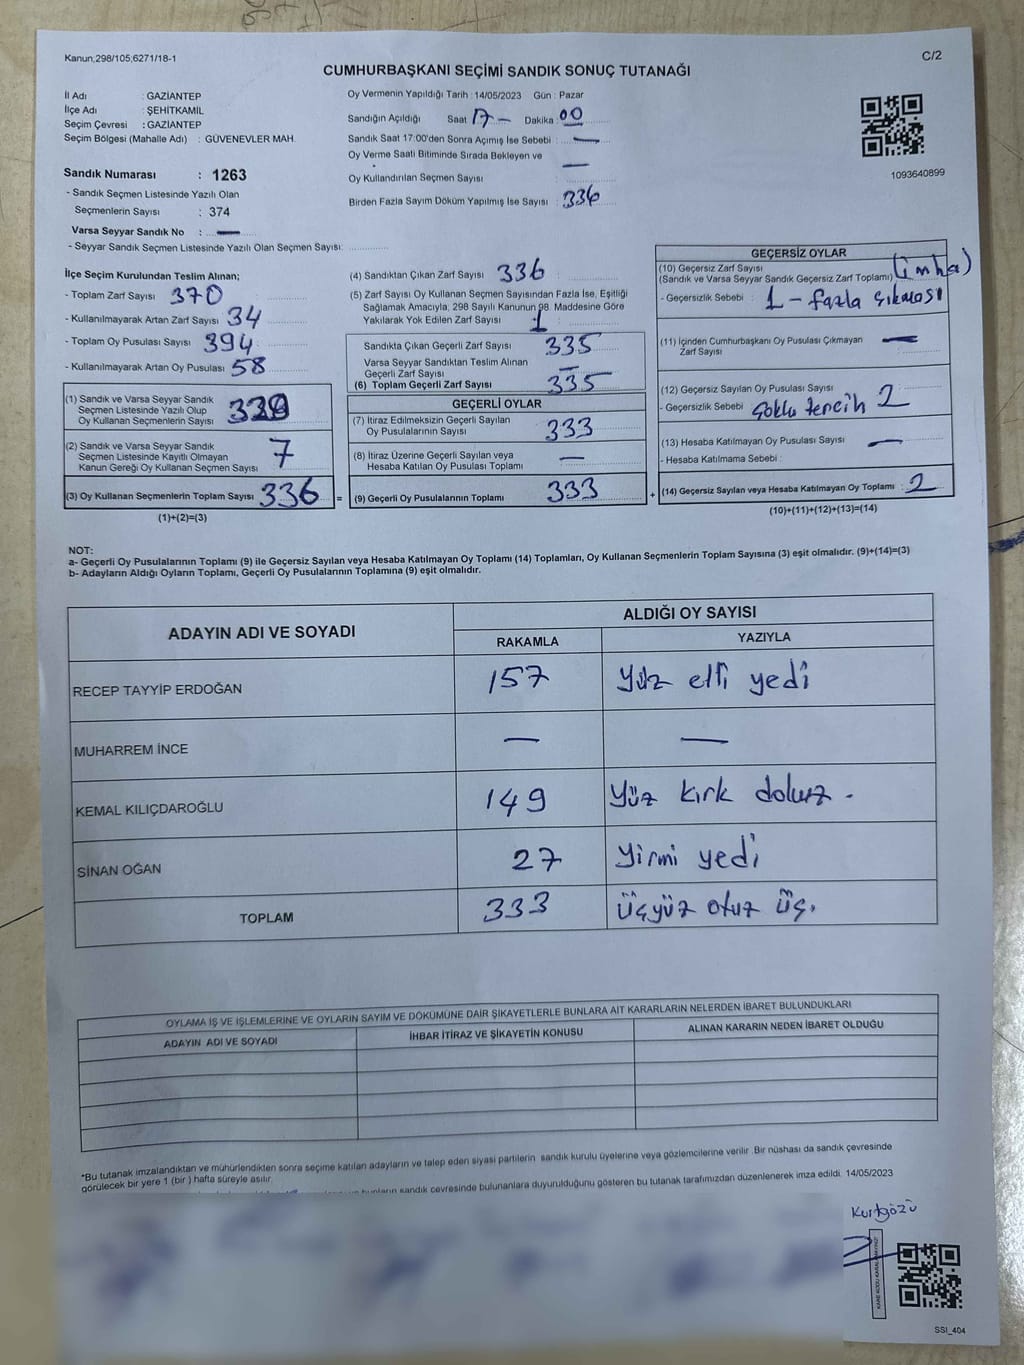 Kanun;298/105;6271/18-1
C/2
CUMHURBAŞKANI SEÇİMİ SANDIK SONUÇ TUTANAĞI
İl Adı : GAZİANTEP
İlçe Adı : ŞEHİTKAMİL
Seçim Çevresi : GAZİANTEP
Seçim Bölgesi (Mahalle Adı) : GÜVENEVLER MAH.
Oy Vermenin Yapıldığı Tarih : 14/05/2023 Gün : Pazar
Sandığın Açıldığı Saat 17 - Dakika : 00
Sandık Saat 17:00'den Sonra Açımış İse Sebebi : —
Oy Verme Saati Bitiminde Sırada Bekleyen ve
Oy Kullandırılan Seçmen Sayısı : —
Birden Fazla Sayım Döküm Yapılmış İse Sayısı : 336
1093640899
Sandık Numarası : 1263
- Sandık Seçmen Listesinde Yazılı Olan
Seçmenlerin Sayısı : 374
Varsa Seyyar Sandık No : —
- Seyyar Sandık Seçmen Listesinde Yazılı Olan Seçmen Sayısı:
İlçe Seçim Kurulundan Teslim Alınan;
- Toplam Zarf Sayısı 370
- Kullanılmayarak Artan Zarf Sayısı 34
- Toplam Oy Pusulası Sayısı 394
- Kullanılmayarak Artan Oy Pusulası 58
(1) Sandık ve Varsa Seyyar Sandık
Seçmen Listesinde Yazılı Olup
Oy Kullanan Seçmenlerin Sayısı
(2) Sandık ve Varsa Seyyar Sandık
Seçmen Listesinde Kayıtlı Olmayan
Kanun Gereği Oy Kullanan Seçmen Sayısı 7
(3) Oy Kullanan Seçmenlerin Toplam Sayısı 336 =
(1)+(2)=(3)
(4) Sandıktan Çıkan Zarf Sayısı 336
(5) Zarf Sayısı Oy Kullanan Seçmen Sayısından Fazla İse, Eşitliği
Sağlamak Amacıyla, 298 Sayılı Kanunun 98. Maddesine Göre
Yakılarak Yok Edilen Zarf Sayısı 1
Sandıkta Çıkan Geçerli Zarf Sayısı 335
Varsa Seyyar Sandıktan Teslim Alınan
Geçerli Zarf Sayısı —
(6) Toplam Geçerli Zarf Sayısı 335
GEÇERLİ OYLAR
(7) İtiraz Edilmeksizin Geçerli Sayılan
Oy Pusulalarının Sayısı 333
(8) İtiraz Üzerine Geçerli Sayılan veya
Hesaba Katılan Oy Pusulası Toplamı —
(9) Geçerli Oy Pusulalarının Toplamı 333 +
GEÇERSİZ OYLAR
(10) Geçersiz Zarf Sayısı
(Sandık ve Varsa Seyyar Sandık Geçersiz Zarf Toplamı) (imha)
- Geçersizlik Sebebi : 1 - fazla çıkması
(11) İçinden Cumhurbaşkanı Oy Pusulası Çıkmayan
Zarf Sayısı —
(12) Geçersiz Sayılan Oy Pusulası Sayısı
- Geçersizlik Sebebi Çoklu tercih 2
(13) Hesaba Katılmayan Oy Pusulası Sayısı —
- Hesaba Katılmama Sebebi :
(14) Geçersiz Sayılan veya Hesaba Katılmayan Oy Toplamı : 2
(10)+(11)+(12)+(13)=(14)
NOT:
a- Geçerli Oy Pusulalarının Toplamı (9) ile Geçersiz Sayılan veya Hesaba Katılmayan Oy Toplamı (14) Toplamları, Oy Kullanan Seçmenlerin Toplam Sayısına (3) eşit olmalıdır. (9)+(14)=(3)
b- Adayların Aldığı Oyların Toplamı, Geçerli Oy Pusulalarının Toplamına (9) eşit olmalıdır.
ADAYIN ADI VE SOYADI
ALDIĞI OY SAYISI
RAKAMLA YAZIYLA
RECEP TAYYİP ERDOĞAN 157 Yüz elli yedi
MUHARREM İNCE — —
KEMAL KILIÇDAROĞLU 149 Yüz kırk dokuz .
SİNAN OĞAN 27 Yirmi yedi
TOPLAM 333 Üçyüz otuz üç.
OYLAMA İŞ VE İŞLEMLERİNE VE OYLARIN SAYIM VE DÖKÜMÜNE DAİR ŞİKAYETLERLE BUNLARA AİT KARARLARIN NELERDEN İBARET BULUNDUKLARI
ADAYIN ADI VE SOYADI İHBAR İTİRAZ VE ŞİKAYETİN KONUSU ALINAN KARARIN NEDEN İBARET OLDUĞU
*Bu tutanak imzalandıktan ve mühürlendikten sonra seçime katılan adayların ve talep eden siyasi partilerin sandık kurulu üyelerine veya gözlemcilerine verilir. Bir nüshası da sandık çevresinde
görülecek bir yere 1 (bir ) hafta süreyle asılır.
bunların sandık çevresinde bulunanlara duyurulduğunu gösteren bu tutanak tarafımızdan düzenlenerek imza edildi. 14/05/2023
Kurtgözü
KARE KODU KARALAMAYINIZ!
SSI_404